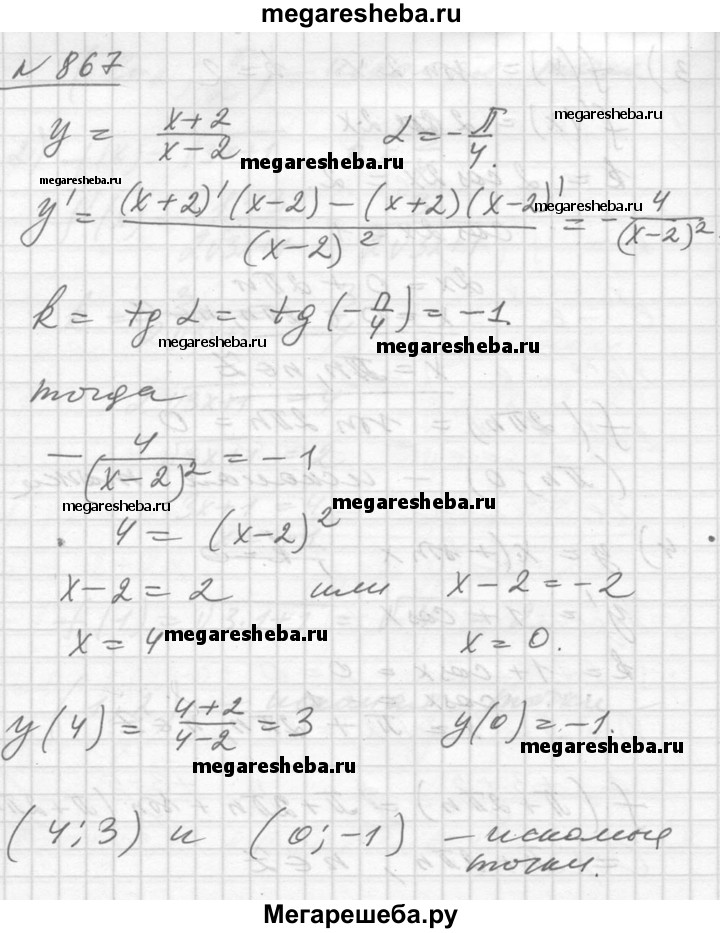 megaresheba.ru
N 867
y = (x+2)/(x-2) α = -π/4.
megaresheba.ru
megaresheba.ru
megaresheba.ru
y' = ((x+2)'(x-2) - (x+2)(x-2)')/(x-2)² = -4/(x-2)².
megaresheba.ru
k = tg α = tg(-π/4) = -1.
megaresheba.ru
megaresheba.ru
тогда
-4/(x-2)² = -1
megaresheba.ru
megaresheba.ru
4 = (x-2)²
x-2 = 2 или x-2 = -2
x = 4 x = 0.
megaresheba.ru
y(4) = (4+2)/(4-2) = 3 y(0) = -1.
megaresheba.ru
megaresheba.ru
(4; 3) и (0; -1) - искомые
точки.
Мегарешеба.ру